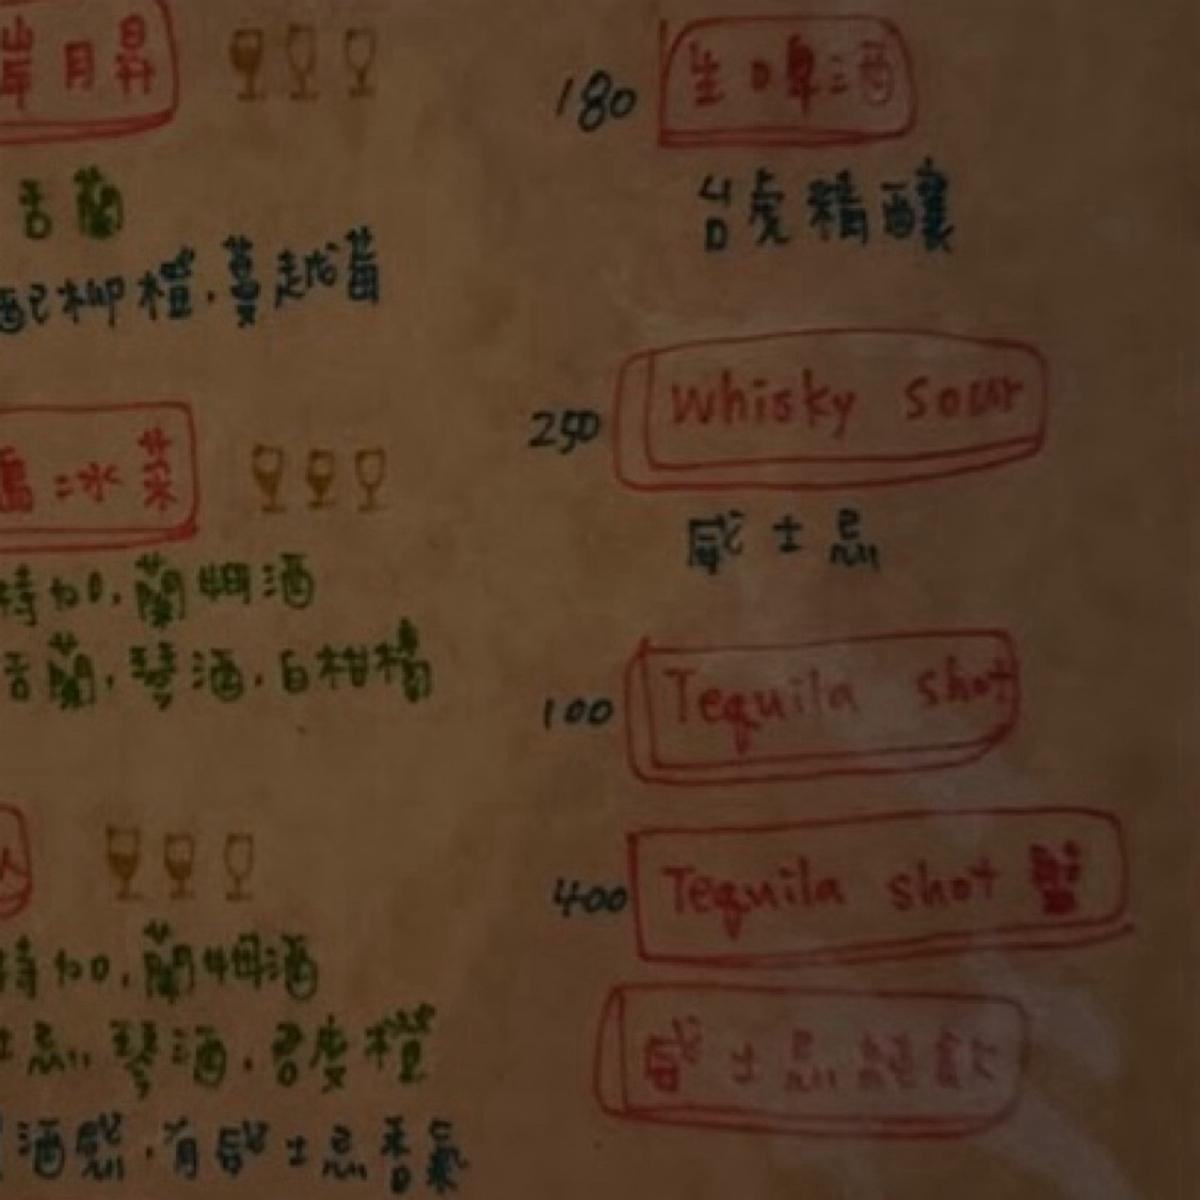 岸月昇
舌蘭
配柳橙.蔓越莓
冰茶
特加.蘭姆酒
舌蘭.琴酒.白柑橘
人
特加.蘭姆酒
士忌.琴酒.君度橙
酒感.有威士忌香氣
180 生啤酒
台虎精釀
250 Whisky Sour
威士忌
100 Tequila shot
400 Tequila shot
威士忌純飲